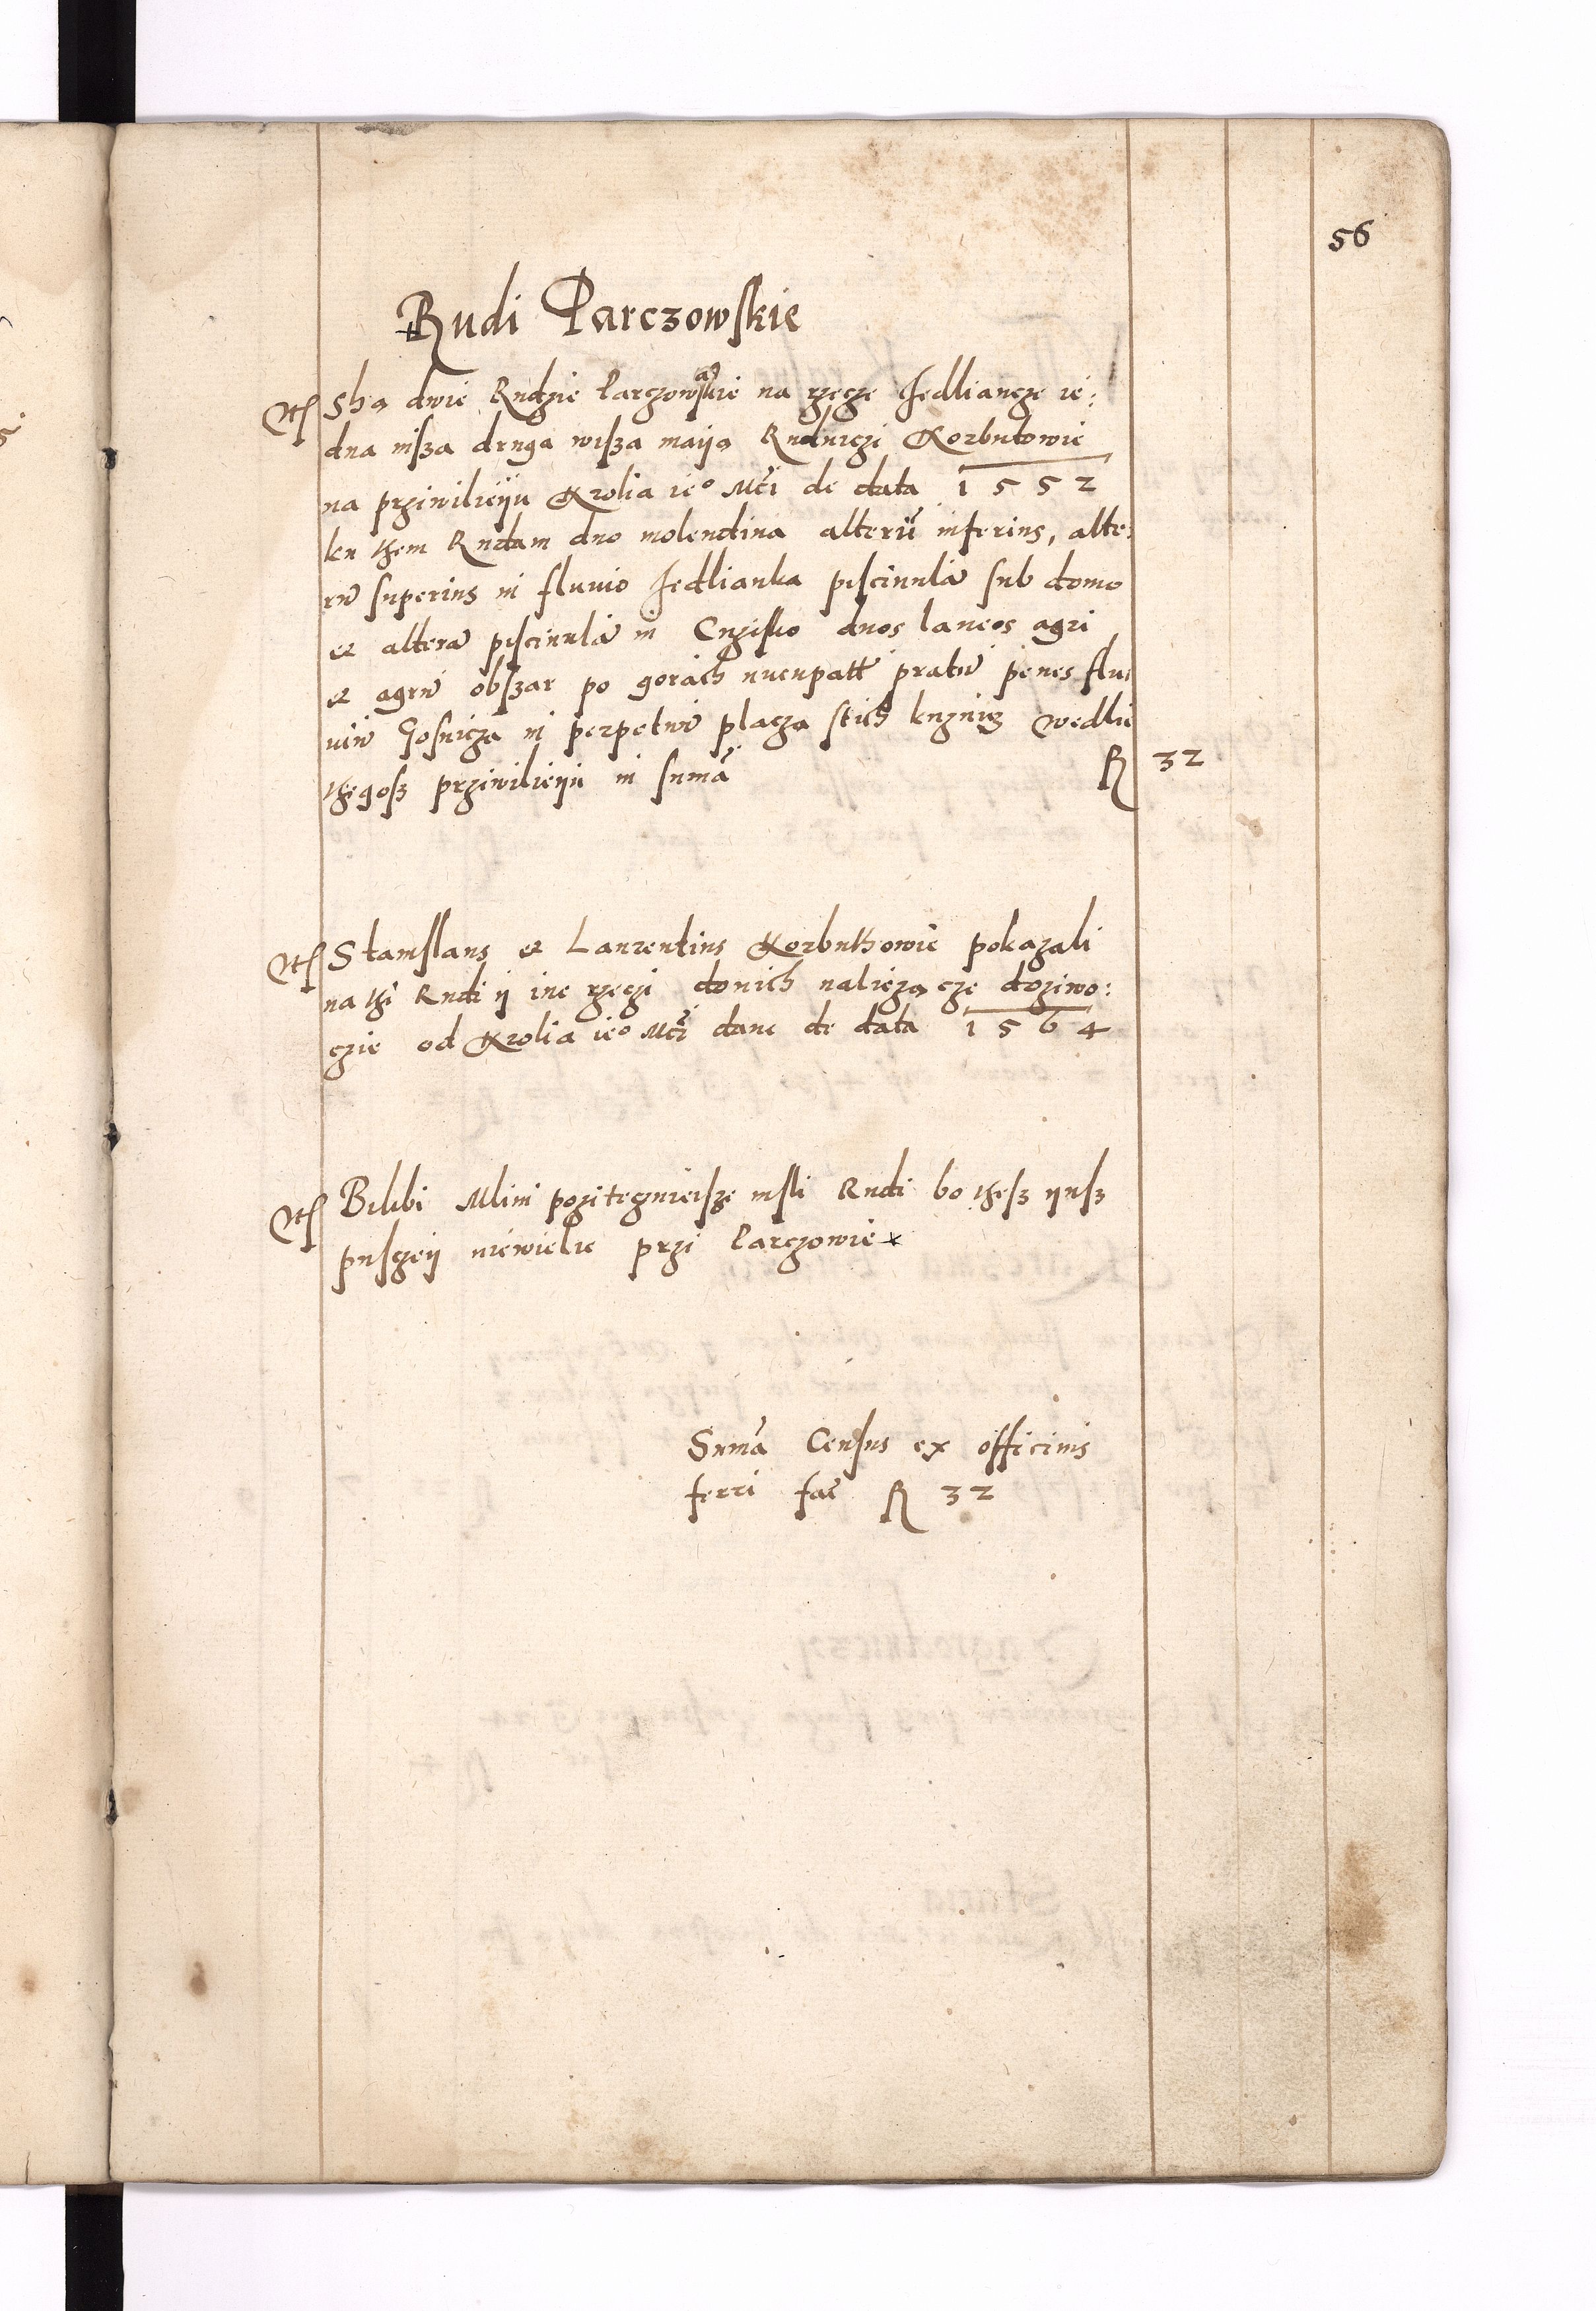 56
Rudi Parczowskie
Itͫ Sþą dwie Rudzie Parczowskie na rzecze Jedliancze ie:
dna nisza druga wisza maiją Rudniczi Korbutowie
na prziwilieiju Krolia ieº Mc̃i de data 1552
ku them Rudam duo molendina alterũ inferius, alte:
rũ superius in fluvio Jedlianka piscinulã sub domo
et alterã piscinulã in Cuzisko duos laneos agri
et agrũ obszar po gorach nucupatt pratũ penes flu:
uiũ Gosniczã in perpetuũ placzą stich kuznicz wedlie
thegosz prziwilieiju in sum̃a ff 32
Itͫ Stanislaus et Laurentius Korbuthowie pokazali
na thi Rudi ij ine rzeczi donich naliezącze doziwo:
czie od Krolia ieº Mc̃i dane de data 1564
Itͫ Bilibi Mlini pozitecznieisze nisli Rudi bo thesz ijusz
pusczeij niewielie przi Parczowie
Sum̃a Census ex officinis
ferri fac̃ ff 32